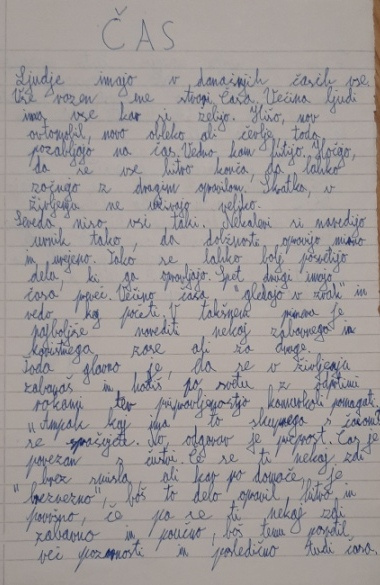 ČAS
Ljudje imajo v današnjih časih vse.
Vse razen ene stvari. Časa. Večina ljudi
ima vse kar si želijo. Hišo, nov
avtomobil, novo obleko ali čevlje toda
pozabljajo na čas. Vedno kam hitijo. Hočejo,
da se vse hitro konča, da lahko
začnejo z drugim opravilom. Skratka, v
življenju ne uživajo veliko.
Seveda niso vsi taki. Nekateri si naredijo
urnik tako, da dolžnosti opravijo mirno
in urejeno. Tako se lahko bolj posvetijo
dela, ki ga opravljajo. Spet drugi imajo
časa preveč. Večino časa "gledajo v zrak" in
ne vedo kaj početi. V takšnem primeru je
najboljše narediti nekaj zabavnega in
koristnega zase ali za druge.
Toda glavno je, da se v življenju
zabavaš in hodiš po svetu z odprtimi
rokami ter pripravljenostjo komurkoli pomagati.
"Ampak kaj ima to skupnega s časom?"
se vprašujete. No, odgovor je preprost. Čas je
povezan z čustvi. Če se ti nekaj zdi
brez smisla ali kar po domače, je
"brezvezno", boš to delo opravil hitro in
površno, če pa se ti nekaj zdi
zabavno in poučno, boš temu posvetil
več pozornosti in posledično tudi časa.